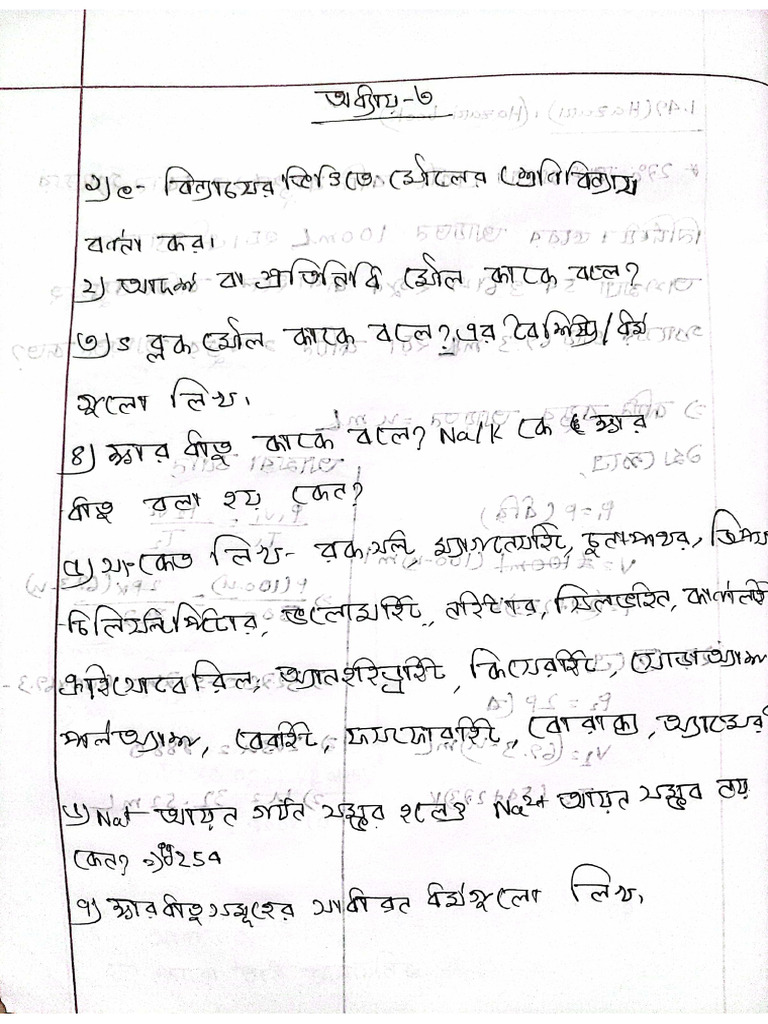 অধ্যায়-৩
১) e- বিন্যাসের ভিত্তিতে মৌলের শ্রেণিবিন্যাস
বর্ণনা কর।
২) আদর্শ বা প্রতিনিধি মৌল কাকে বলে?
৩) s ব্লক মৌল কাকে বলে? এর বৈশিষ্ট্য/ধর্ম
গুলো লিখ।
৪) ক্ষার ধাতু কাকে বলে? Na/K কে ক্ষার
ধাতু বলা হয় কেন?
৫) সংকেত লিখ- রকসল্ট, ম্যাগনেসাইট, চুনাপাথর, জিপসাম
চিলিসল্টপিটার, ডলোমাইট, নাইটার, সিলভাইন, কার্নালাইট
ক্রাইসোবেরিল, অ্যানহাইড্রাইট, কিসেরাইট, সোডাঅ্যাশ
পার্লঅ্যাশ, বেরাইট, ফসফোরাইট, বোরাক্স,
৬) Na+ আয়ন গঠন সম্ভব হলেও Na2+ আয়ন সম্ভব নয়
কেন? 254
৭) ক্ষারধাতুসমূহের সাধারন ধর্মগুলো লিখ।